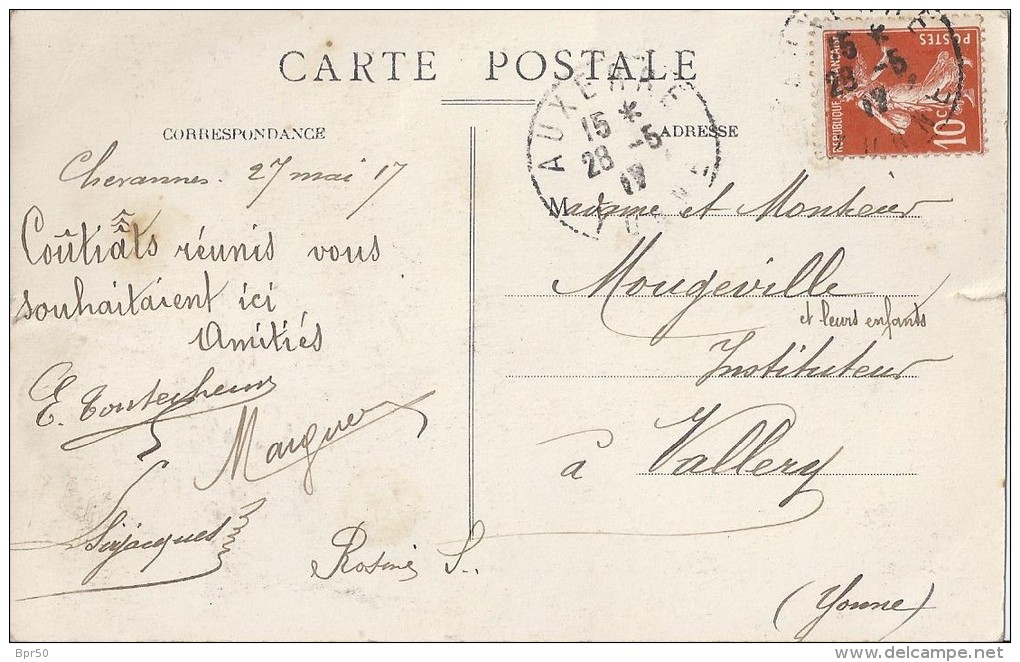 CARTE POSTALE
CORRESPONDANCE
ADRESSE
REPUBLIQUE FRANÇAISE
POSTES
10 c
AUXERRE
15 *
28 -5
17
YONNE
Chevannes. 27 mai 17
Coûtiâts réunis vous
souhaitaient ici
Amitiés
Sirjacques
Rosine S.
Madame et Monsieur
Mougeville
et leurs enfants
Instituteur
à Vallery
(Yonne)
Bpr50
www.delcampe.net